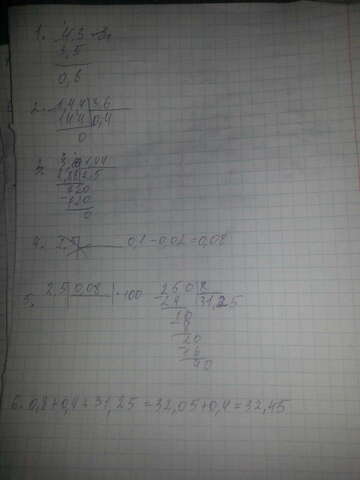 1. 4,3
3,5
0,8
2. 1,44 3,6
144 0,4
0
3. 3,6 1,44
2,88 2,5
720
-720
0
4. 0,1-0,02=0,08
5. 2,5 0,08 ·100 250 8
-24 31,25
10
-8
20
-16
40
6. 0,8+0,4+31,25=32,05+0,4=32,45